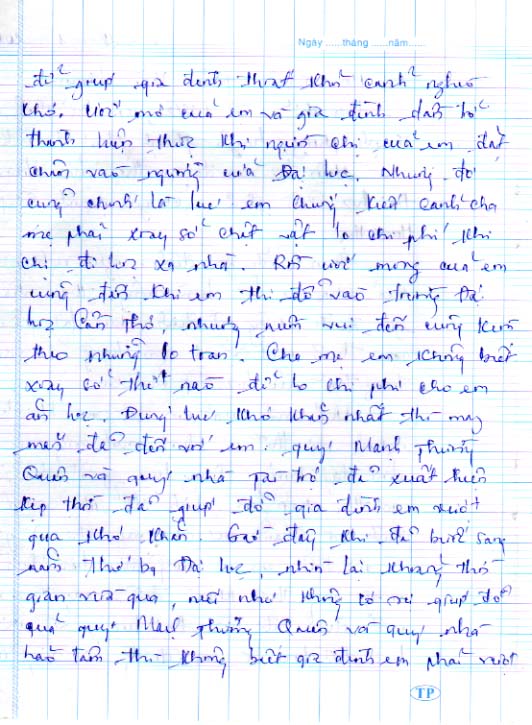 Ngày ..... tháng ..... năm .....
để giúp gia đình thoát khỏi cảnh nghèo
khó. Ước mơ của em và gia đình dần trở
thành hiện thực khi người chị của em đặt
chân vào ngưỡng cửa Đại học. Nhưng đó
cũng chính là lúc em chứng kiến cảnh cha
mẹ phải xoay sở chật vật lo chi phí khi
chị đi học xa nhà. Rồi ước mong của em
cũng đến khi em thi đỗ vào trường Đại
học Cần Thơ, nhưng niềm vui đến cũng kèm
theo những lo toan. Cha mẹ em không biết
xoay sở thế nào để lo chi phí cho em
ăn học. Đúng lúc khó khăn nhất thì may
mắn đã đến với em. quý Mạnh Thường
Quân và quý nhà tài trợ đã xuất hiện
kịp thời đã giúp đỡ gia đình em vượt
qua khó khăn. Giờ đây khi đã bước sang
năm thứ ba Đại học, nhìn lại khoảng thời
gian vừa qua, nếu như không có sự giúp đỡ
của quý Mạnh Thường Quân và quý nhà
hảo tâm thì không biết gia đình em phải vượt
TP